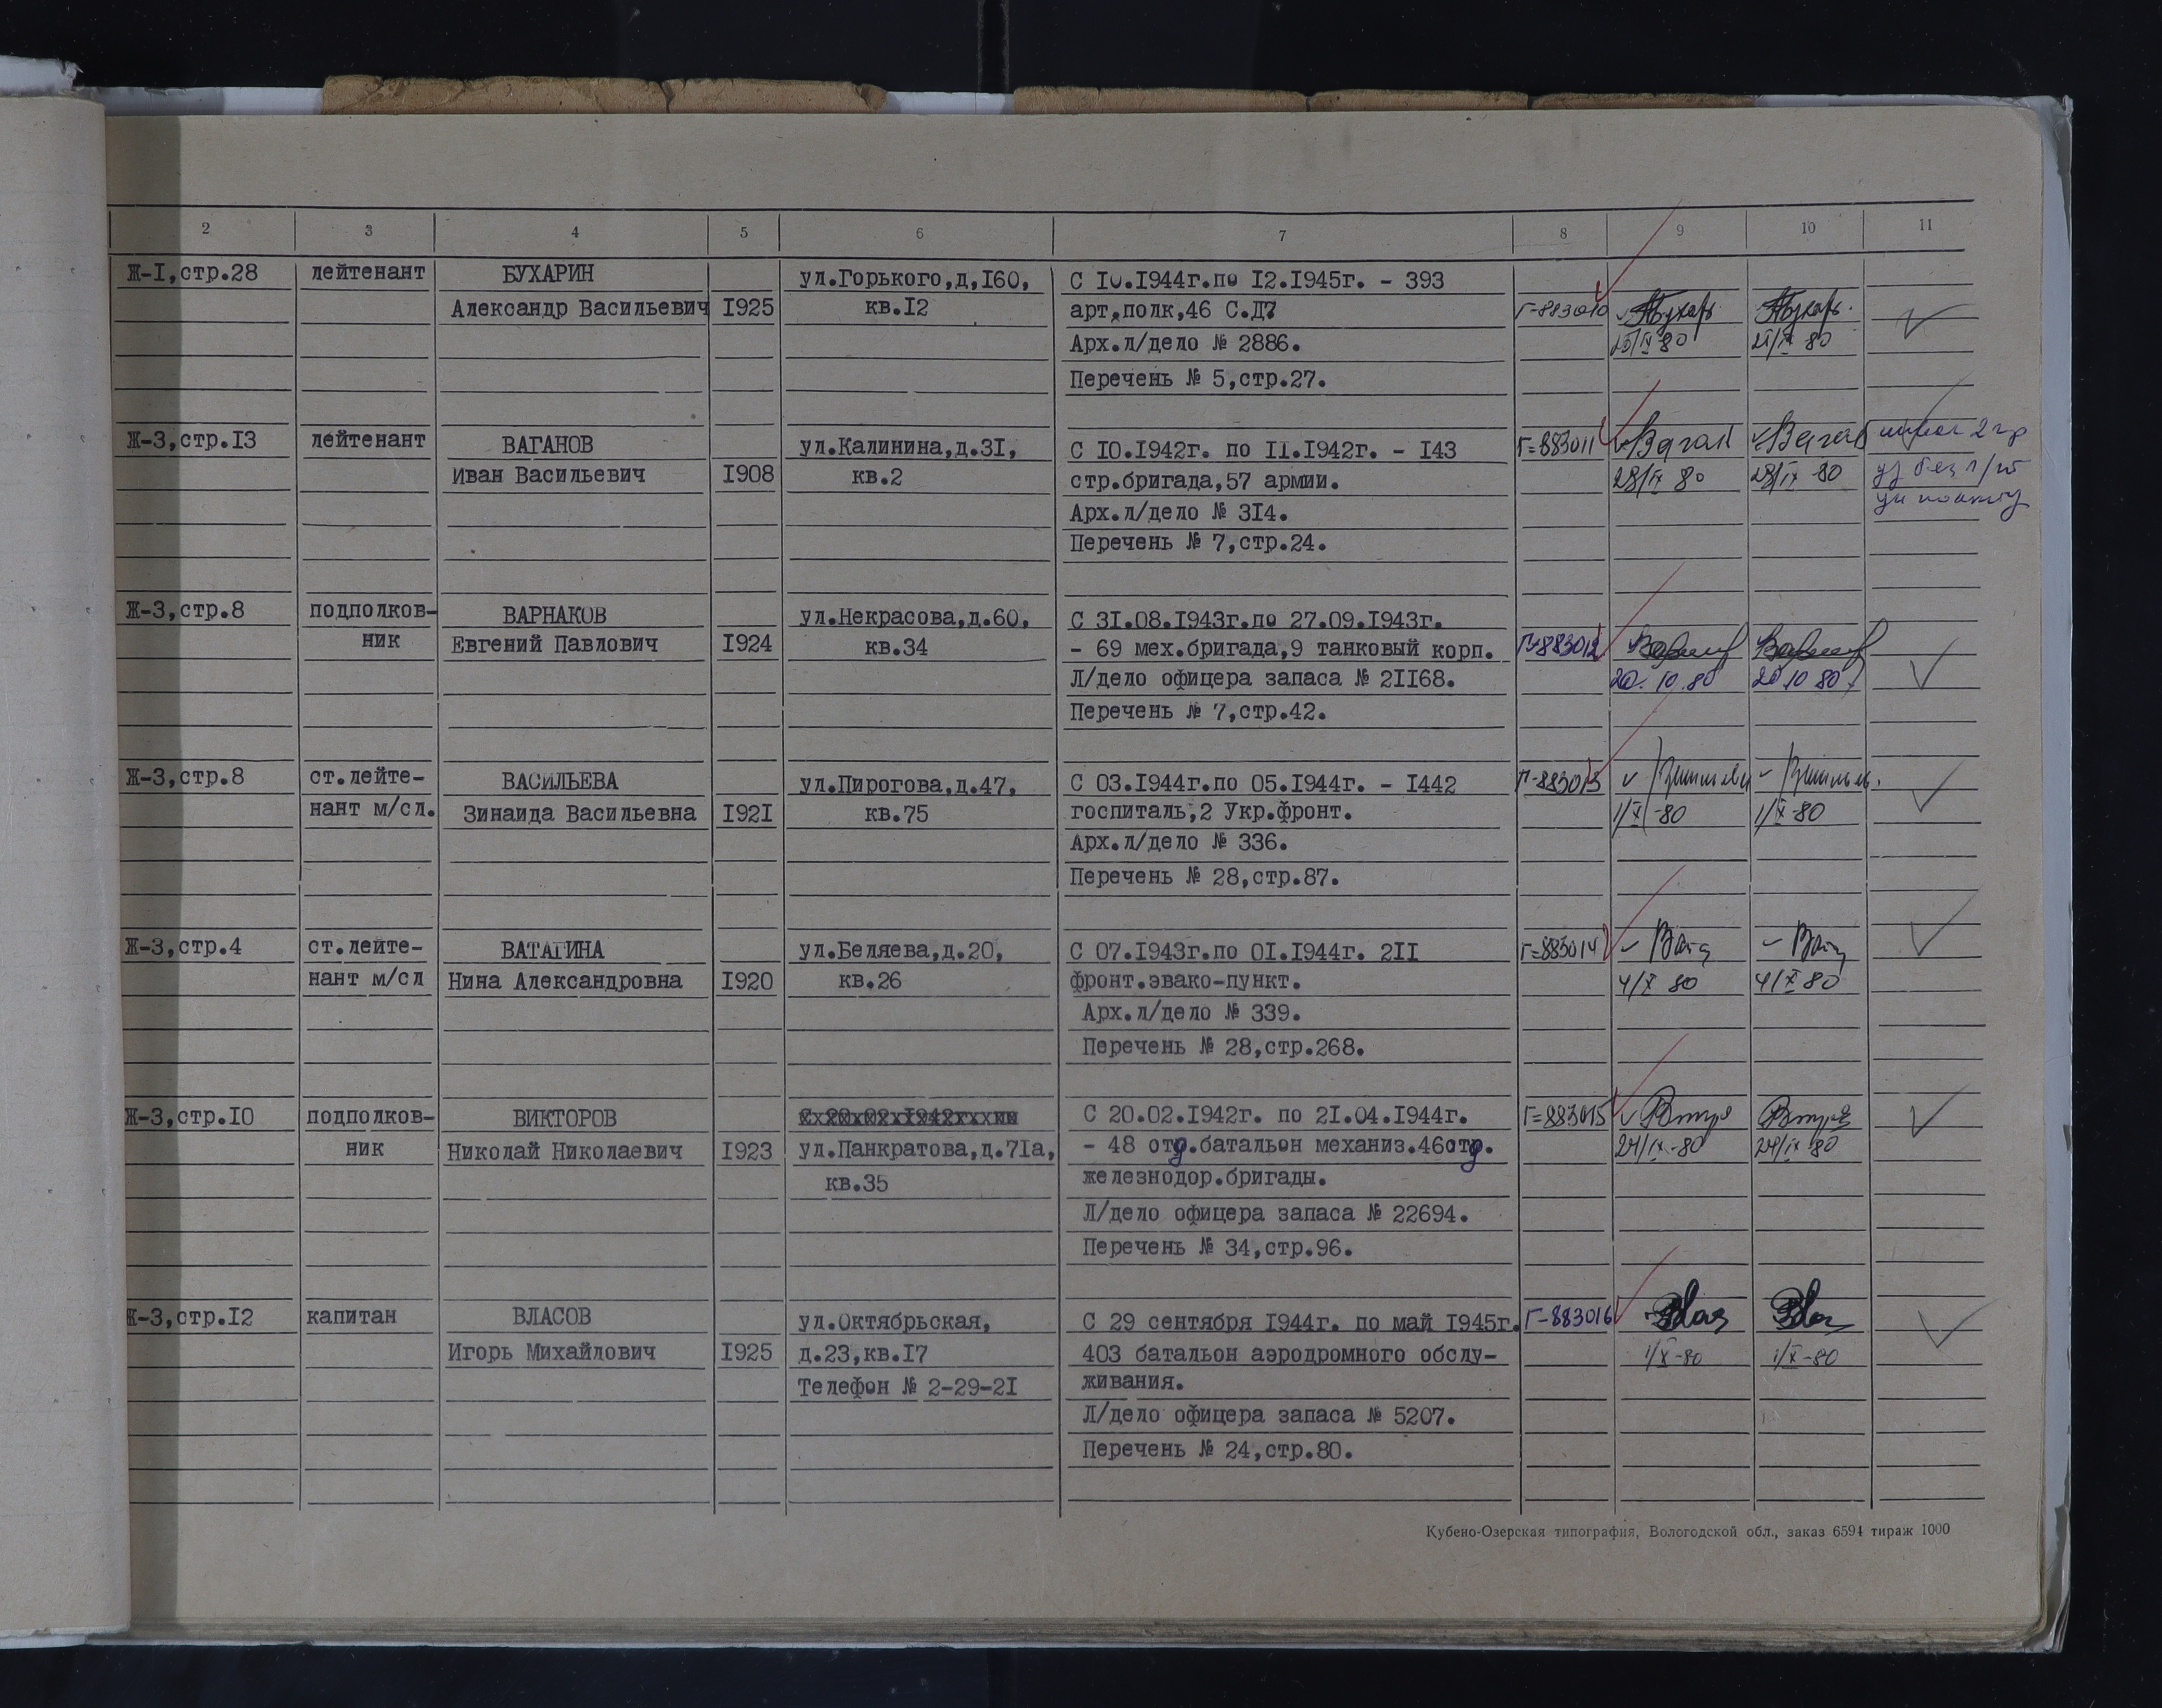 2 3 4 5 6 7 8 9 10 11
Ж-I,стр.28 лейтенант БУХАРИН ул.Горького,д,I60, С I0.I944г.по I2.I945г. - 393
Александр Васильевич I925 кв.I2 арт.полк,46 С.Д7 Г-883010
Арх.л/дело № 2886. 80 80
Перечень № 5,стр.27.
Ж-3,стр.I3 лейтенант ВАГАНОВ ул.Калинина,д.3I, С I0.I942г. по II.I942г. - I43 Г=883011
Иван Васильевич I908 кв.2 стр.бригада,57 армии. 28/IX 80 28/IX 80
Арх.л/дело № 3I4.
Перечень № 7,стр.24.
Ж-3,стр.8 подполков- ВАРНАКОВ ул.Некрасова,д.60, С 3I.08.I943г.по 27.09.I943г.
ник Евгений Павлович I924 кв.34 - 69 мех.бригада,9 танковый корп. Г-883012
Л/дело офицера запаса № 2II68. 20.10.80 20 10 80
Перечень № 7,стр.42.
Ж-3,стр.8 ст.лейте- ВАСИЛЬЕВА ул.Пирогова,д.47, С 03.I944г.по 05.I944г. - I442 Г-883013
нант м/сл. Зинаида Васильевна I92I кв.75 госпиталь,2 Укр.фронт. 1/X-80 1/X-80
Арх.л/дело № 336.
Перечень № 28,стр.87.
Ж-3,стр.4 ст.лейте- ВАТАГИНА ул.Беляева,д.20, С 07.I943г.по 0I.I944г. 2II Г=883014
нант м/сл Нина Александровна I920 кв.26 фронт.эвако-пункт. 4/X 80 4/X 80
Арх.л/дело № 339.
Перечень № 28,стр.268.
Ж-3,стр.I0 подполков- ВИКТОРОВ С 20.02.I942г. по 2I.04.I944г. Г=883015
ник Николай Николаевич I923 ул.Панкратова,д.7Iа, - 48 отд.батальон механиз.46отд. 24/IX-80 24/IX 80
кв.35 железнодор.бригады.
Л/дело офицера запаса № 22694.
Перечень № 34,стр.96.
Ж-3,стр.I2 капитан ВЛАСОВ ул.Октябрьская, С 29 сентября I944г. по май I945г. Г-883016
Игорь Михайлович I925 д.23,кв.I7 403 батальон аэродромного обслу- 1/X-80 1/X-80
Телефон № 2-29-2I живания.
Л/дело офицера запаса № 5207.
Перечень № 24,стр.80.
Кубено-Озерская типография, Вологодской обл., заказ 6594 тираж 1000